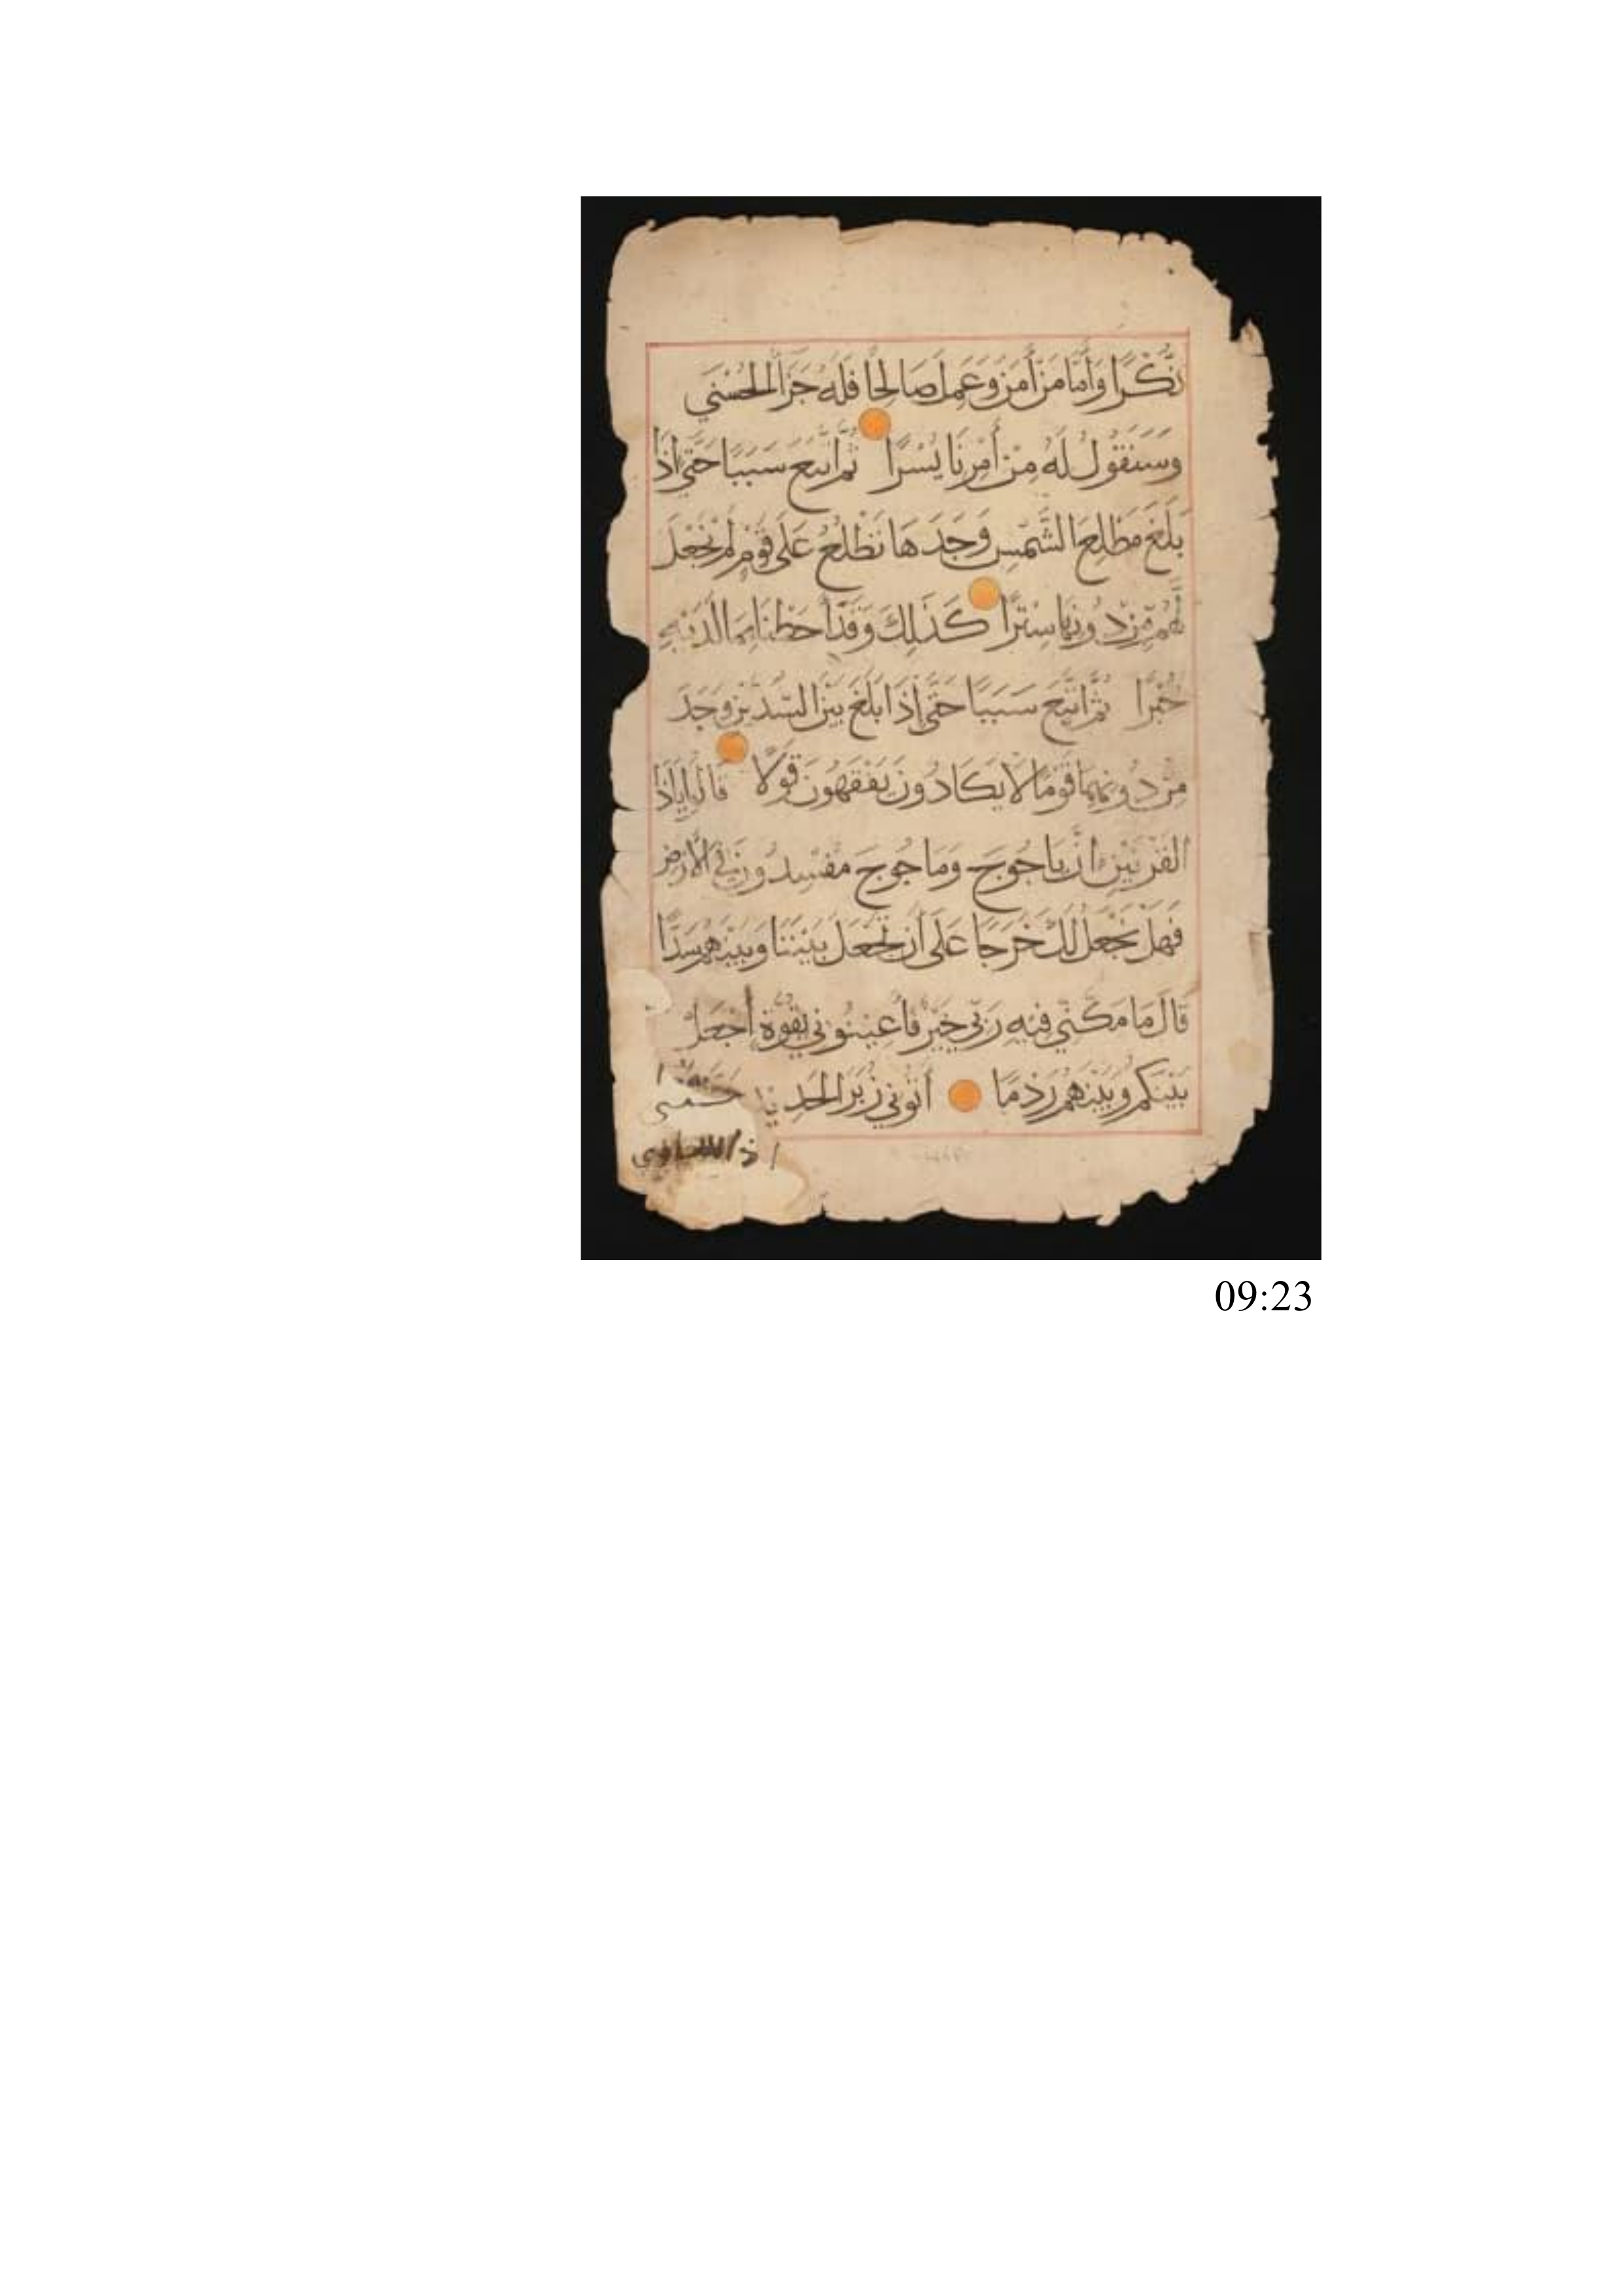 نُّكْرًا وَأَمَّا مَنْ أٰمَنَ وَعَمِلَ صَالِحًا فَلَهُ جَزَآءَ الْحُسْنَي
وَسَنَقُولُ لَهُ مِنْ أَمْرِنَا يُسْرًا ثُمَّ اتَّبَعَ سَبَبًا حَتَّي إِذَا
بَلَغَ مَطْلِعَ الشَّمْسِ وَجَدَهَا تَطْلُعُ عَلَى قَوْمٍ لَمْ نَجْعَلْ
لَّهُمْ مِّنْ دُونِهَا سِتْرًا كَذَلِكَ وَقَدْ أَحَطْنَا بِمَا لَدَيْهِ
خُبْرًا ثُمَّ اتَّبَعَ سَبَبًا حَتَّي إِذَا بَلَغَ بَيْنَ السَّدَّيْنِ وَجَدَ
مِنْ دُونِهِمَا قَوْمًا لَا يَكَادُونَ يَفْقَهُونَ قَوْلًا قَالُوا يَاذَا
الْقَرْنَيْنِ إِنَّ يَاجُوجَ وَمَاجُوجَ مُفْسِدُونَ فِي الْأَرْضِ
فَهَلْ نَجْعَلُ لَكَ خَرْجًا عَلَى أَنْ تَجْعَلَ بَيْنَنَا وَبَيْنَهُمْ سَدًّا
قَالَ مَا مَكَّنِّي فِيْهِ رَبِّي خَيْرٌ فَأَعِيْنُونِي بِقُوَّةٍ أَجْعَلْ
بَيْنَكُمْ وَبَيْنَهُمْ رَدْمًا أٰتُونِي زُبَرَ الْحَدِيْدِ حَتَّي
اذا ساوي
09:23